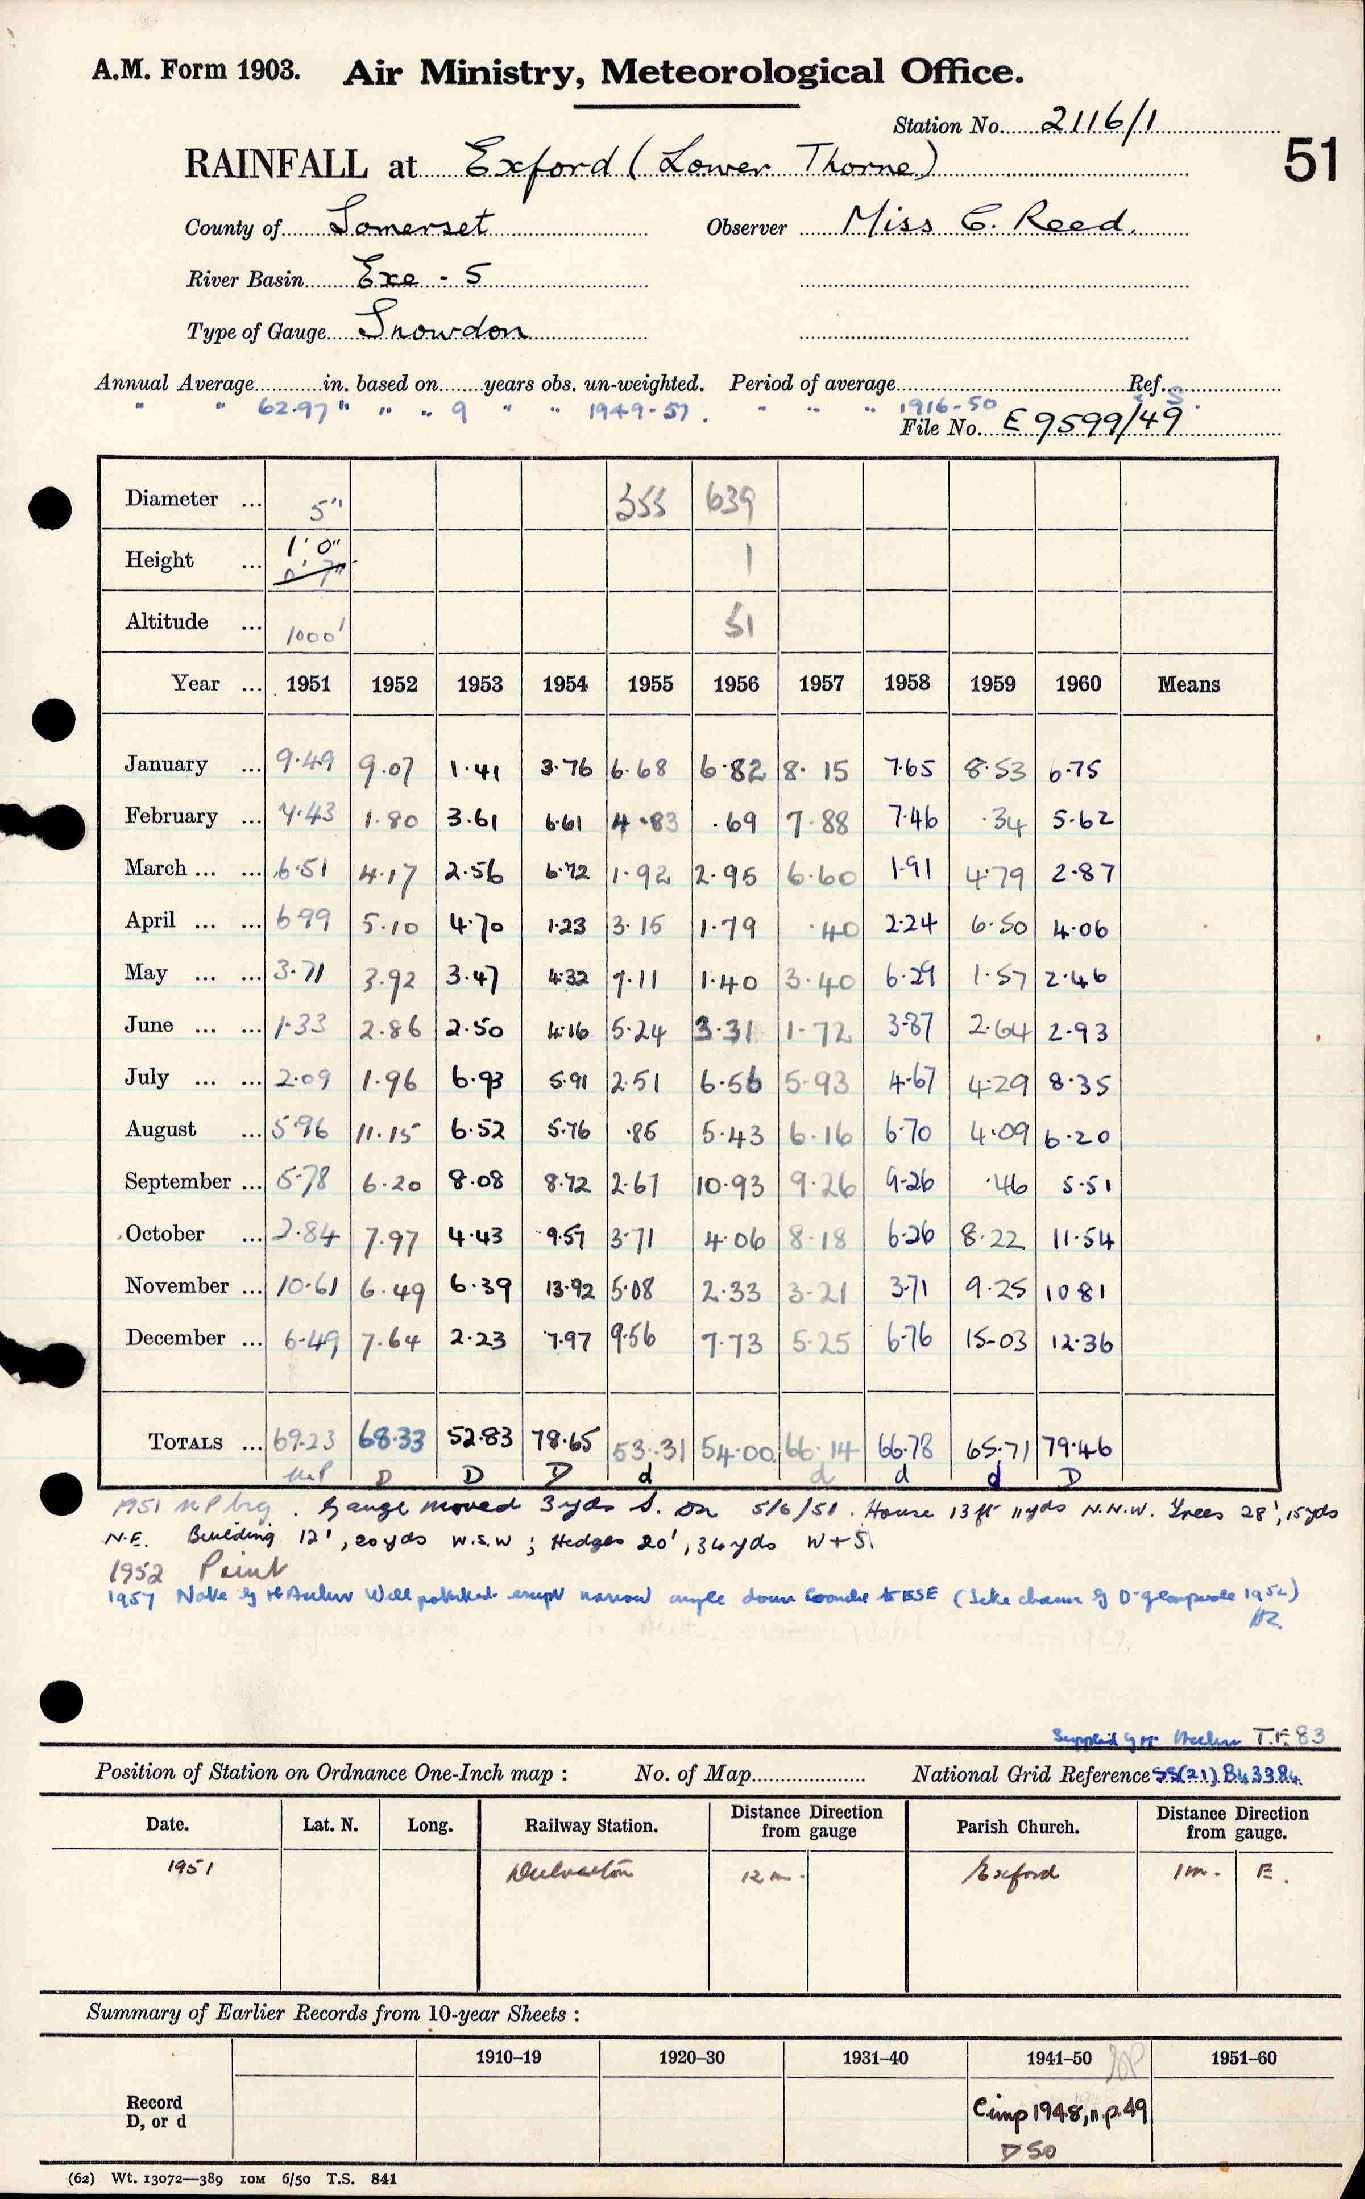 A.M. Form 1903. Air Ministry, Meteorological Office.
Station No. 2116/1
51
RAINFALL at Exford (Lower Thorne)
County of Somerset Observer Miss C. Reed.
River Basin Exe - 5
Type of Gauge Snowdon
Annual Average in. based on years obs. un-weighted. Period of average Ref.
" " 62.97" " " 9 " " 1949-57. " " " 1916-50
File No. E 9599/49
Diameter ... 5" 355 639
Height ... 1' 0" 1
0' 7"
Altitude ... 1000' 51
Year ... 1951 1952 1953 1954 1955 1956 1957 1958 1959 1960 Means
January ... 9.49 9.07 1.41 3.76 6.68 6.82 8.15 7.65 8.53 6.75
February ... 7.43 1.80 3.61 6.61 4.83 .69 7.88 7.46 .34 5.62
March ... ... 6.51 4.17 2.56 6.72 1.92 2.95 6.60 1.91 4.79 2.87
April ... ... 6.99 5.10 4.70 1.23 3.15 1.79 .40 2.24 6.50 4.06
May ... ... 3.71 3.92 3.47 4.32 7.11 1.40 3.40 6.29 1.57 2.46
June ... ... 1.33 2.86 2.50 4.16 5.24 3.31 1.72 3.87 2.64 2.93
July ... ... 2.09 1.96 6.93 5.91 2.51 6.56 5.93 4.67 4.29 8.35
August ... 5.96 11.15 6.52 5.76 .85 5.43 6.16 6.70 4.09 6.20
September ... 5.78 6.20 8.08 8.72 2.67 10.93 9.26 9.26 .46 5.51
October ... 2.84 7.97 4.43 9.57 3.71 4.06 8.18 6.26 8.22 11.54
November ... 10.61 6.49 6.39 13.92 5.08 2.33 3.21 3.71 9.25 10.81
December ... 6.49 7.64 2.23 7.97 9.56 7.73 5.25 6.76 15.03 12.36
TOTALS ... 69.23 68.33 52.83 78.65 53.31 54.00 66.14 66.78 65.71 79.46
n.P D D D d d d d D
1951 n P brg. Gauge moved 3 yds S. on 5/6/51. House 13 ft 11 yds N.N.W. Trees 28', 15 yds
N.E. Building 12', 20 yds W.S.W; Hedges 20', 34 yds W + S.
1952 Print
1957 Note by Mr Well protected except narrow angle down Coombe to ESE (
Supplied by Mr. T.F. 83
Position of Station on Ordnance One-Inch map : No. of Map National Grid Reference SS(21) 843384
Date. Lat. N. Long. Railway Station. Distance Direction from gauge Parish Church. Distance Direction from gauge.
1951 Dulverton 12 m. Exford 1 m. E.
Summary of Earlier Records from 10-year Sheets :
1910–19 1920–30 1931–40 1941–50 1951–60
Record
D, or d
Cimp 1948, n.p. 49
D 50
(62) Wt. 13072—389 10M 6/50 T.S. 841